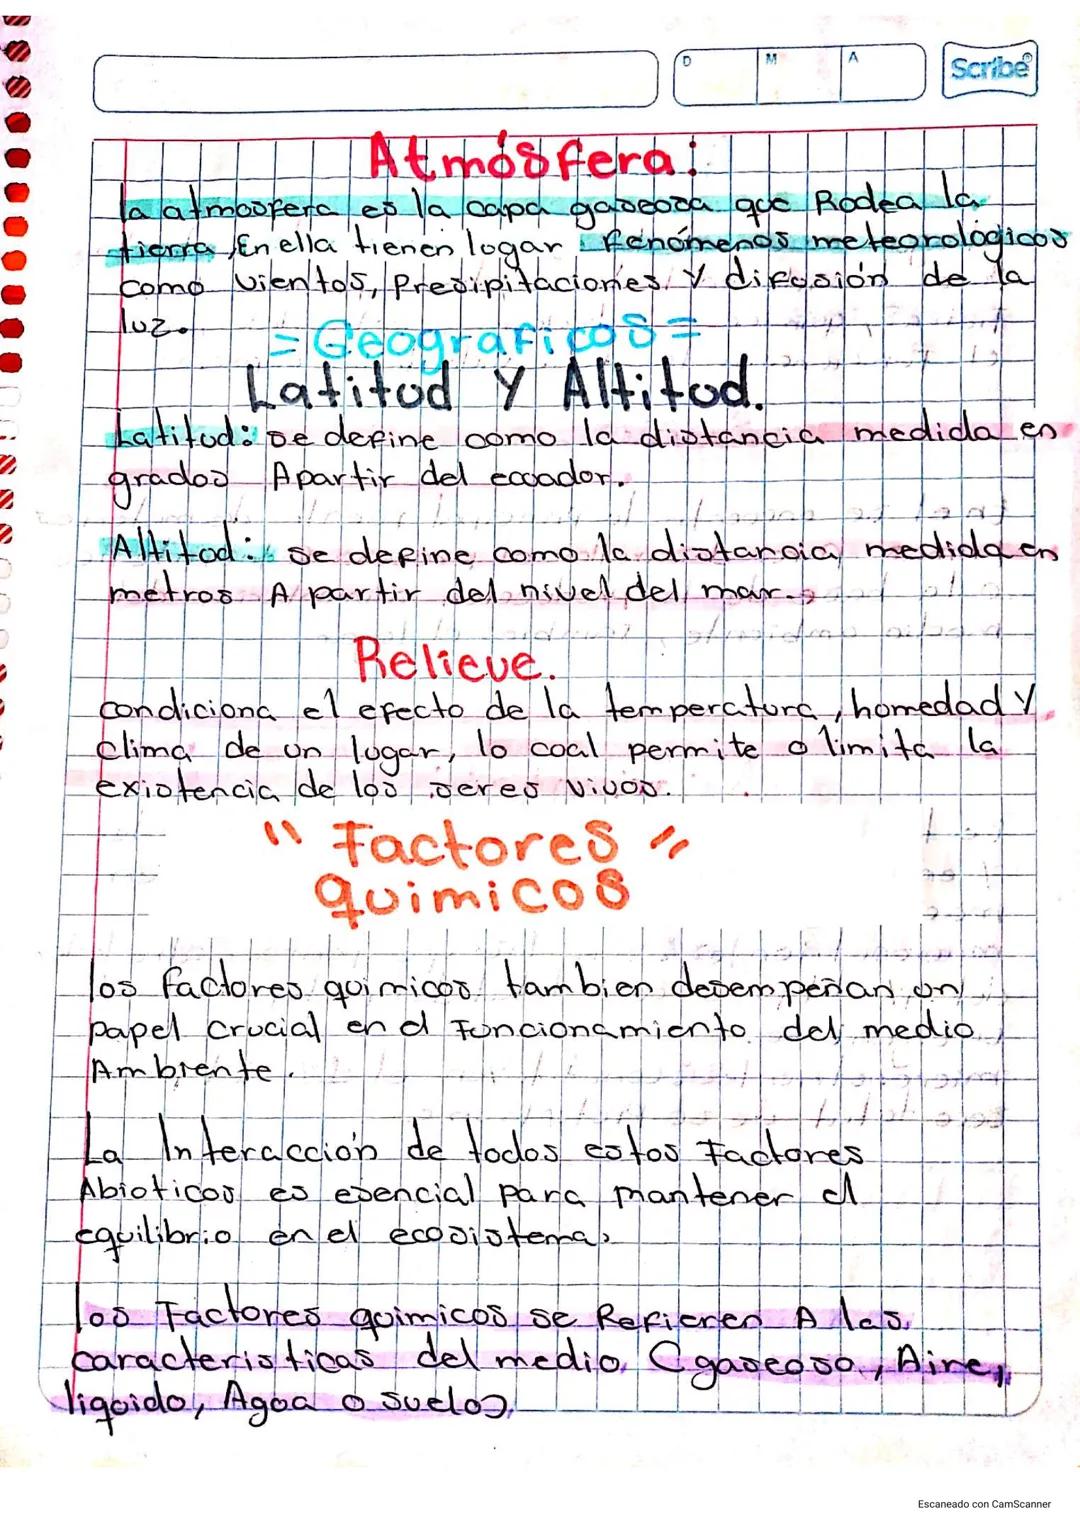 D M A Scribe
Atmósfera:
La atmosfera es la capa gaseosa que Rodea la
tierra, En ella tienen lugar fenómenos meteorológicos
como vientos, Presipitaciones Y difusión de la
luz.
= Geograficos =
Latitud Y Altitud.
Latitud: se define como la distancia medida en
grados Apartir del ecuador.
Altitud: se define como la distancia medida en
metros A partir del nivel del mar.
Relieve.
condiciona el efecto de la temperatura, homedad Y
clima de un lugar, lo cual permite o limita la
existencia de los seres vivos.
" Factores "
quimicos
los factores quimicos tambien desempeñan un
papel crucial en el Funcionamiento del medio
Ambiente.
La Interacción de todos estos Factores
Abioticos es esencial para mantener el
equilibrio en el ecosistema.
los Factores quimicos se Refieren A las
caracteristicas del medio (gaseoso, Aire,
liquido, Agua o suelo).
Escaneado con CamScanner